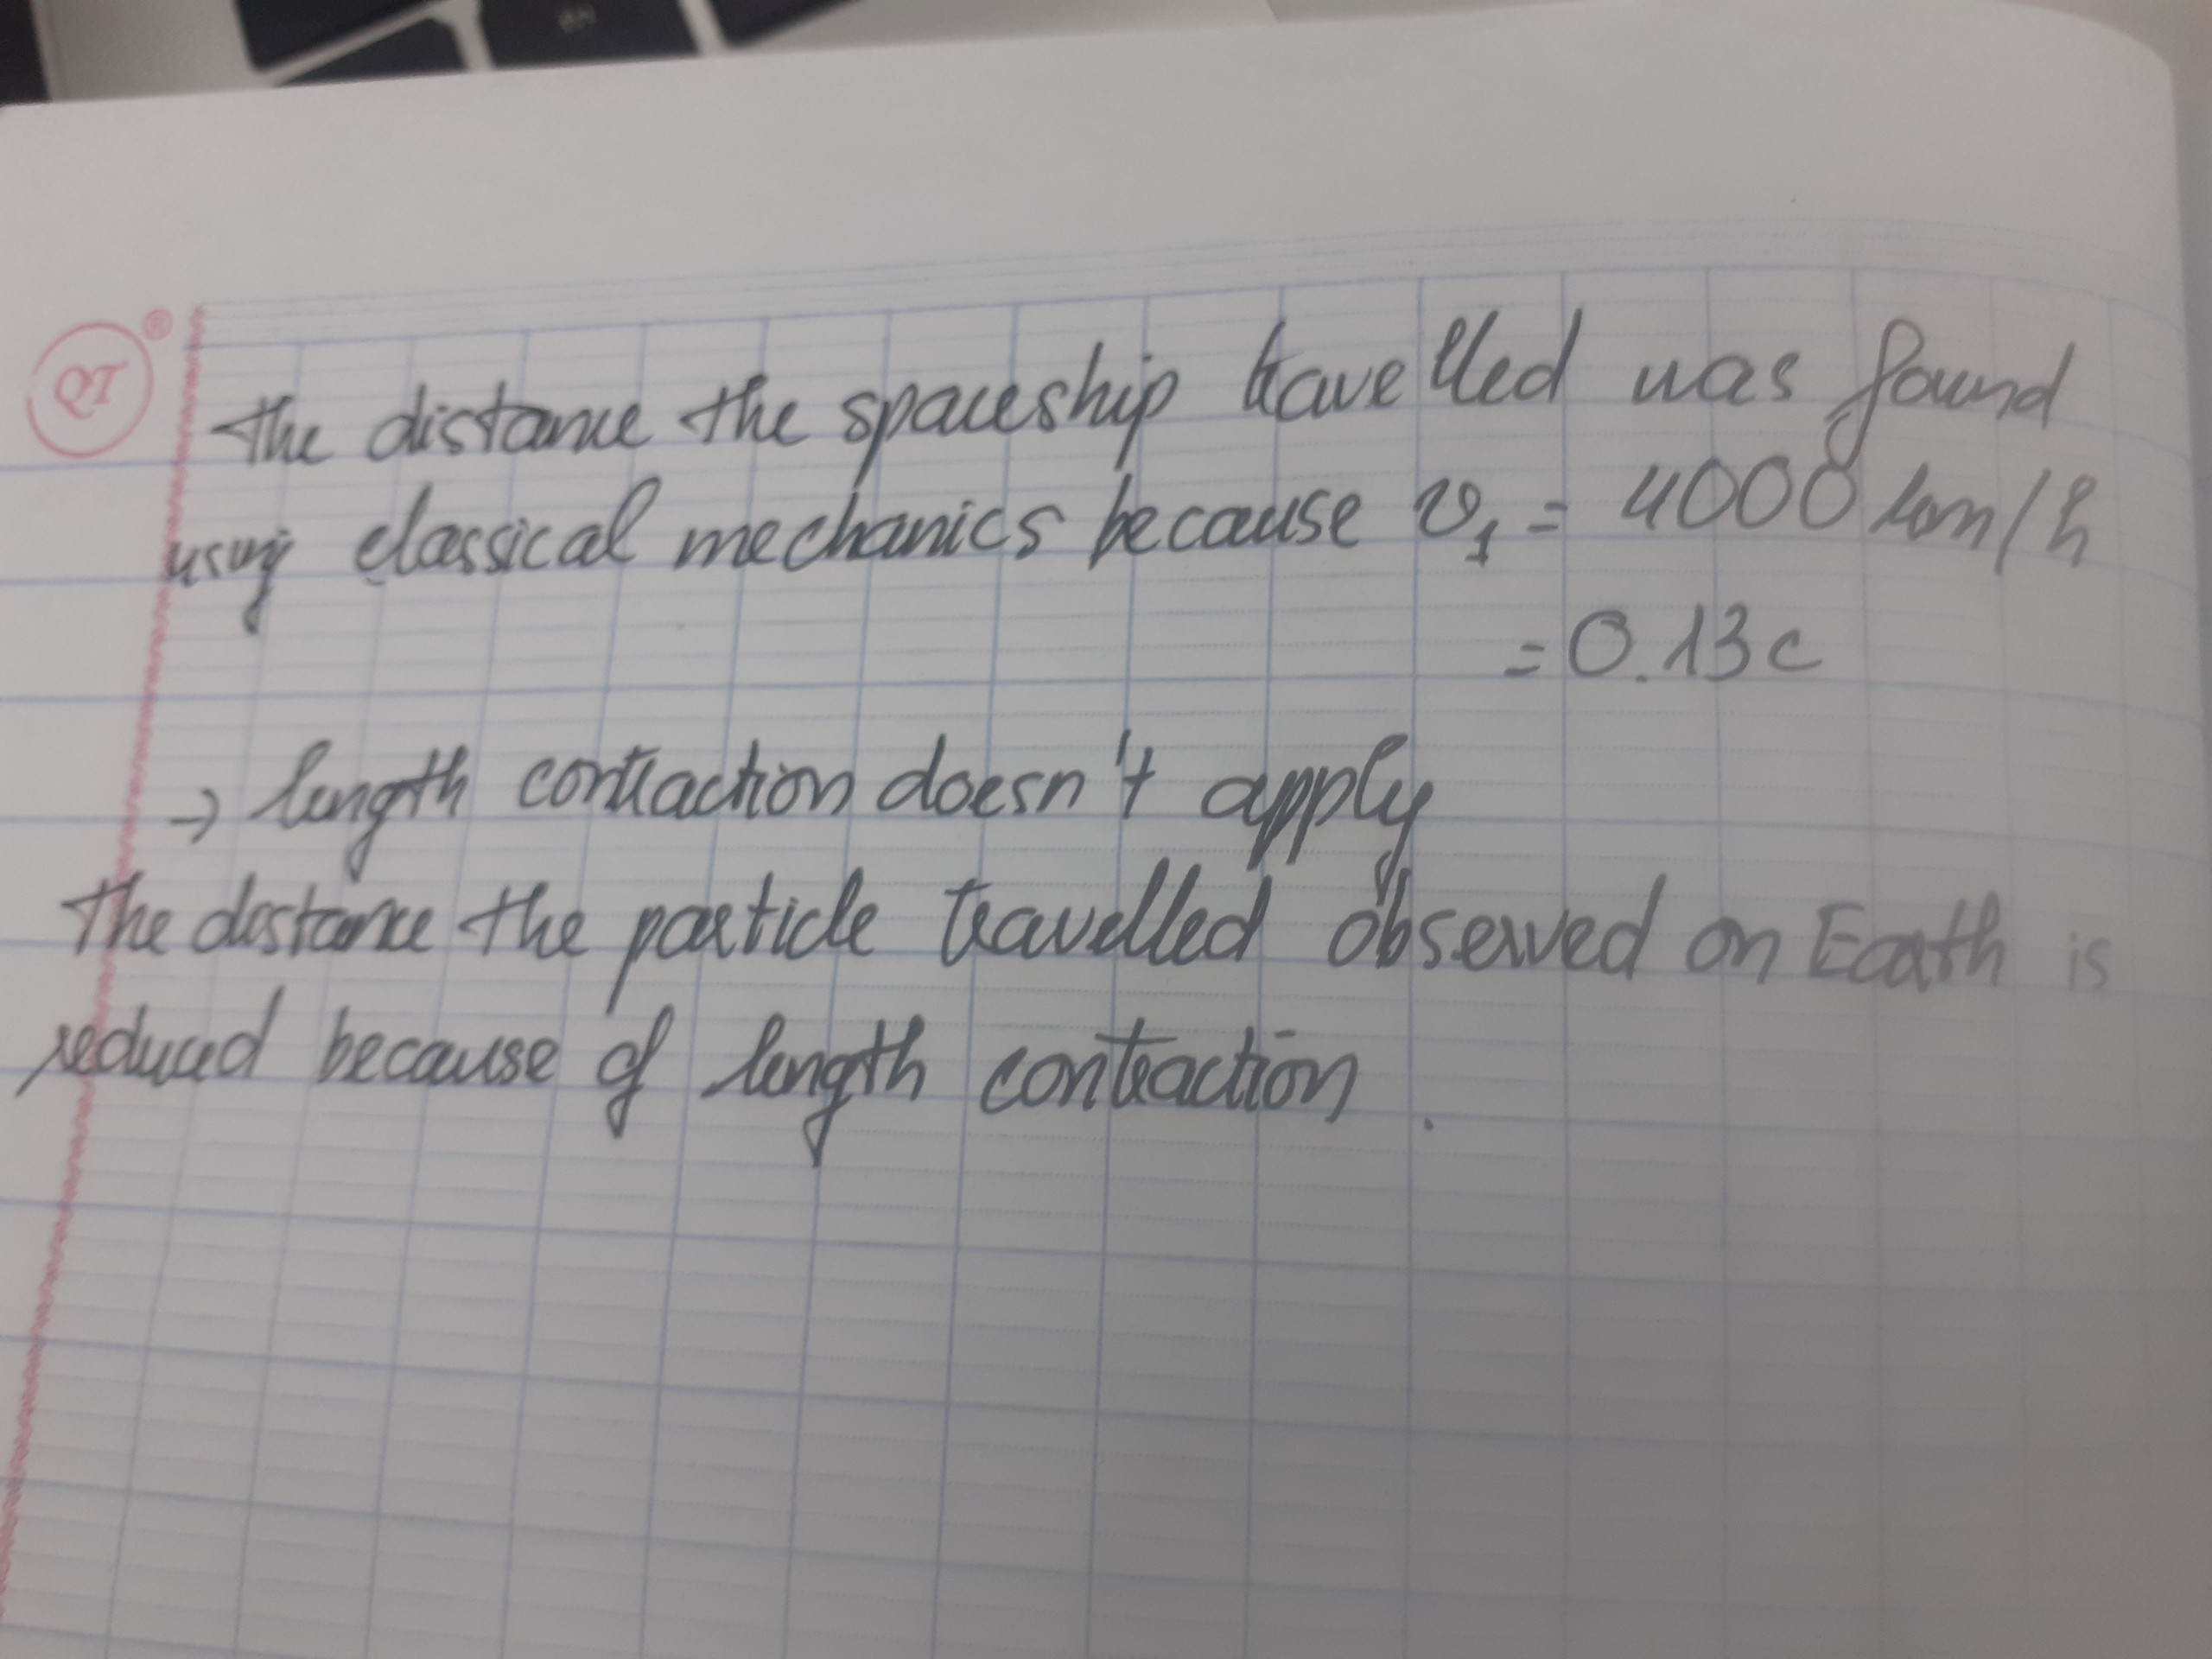 QT ®
The distance the spaceship travelled was found
using classical mechanics because v₁ = 4000 km/h
= 0.13c
→ length contraction doesn't apply
The distance the particle travelled observed on Earth is
reduced because of length contraction.